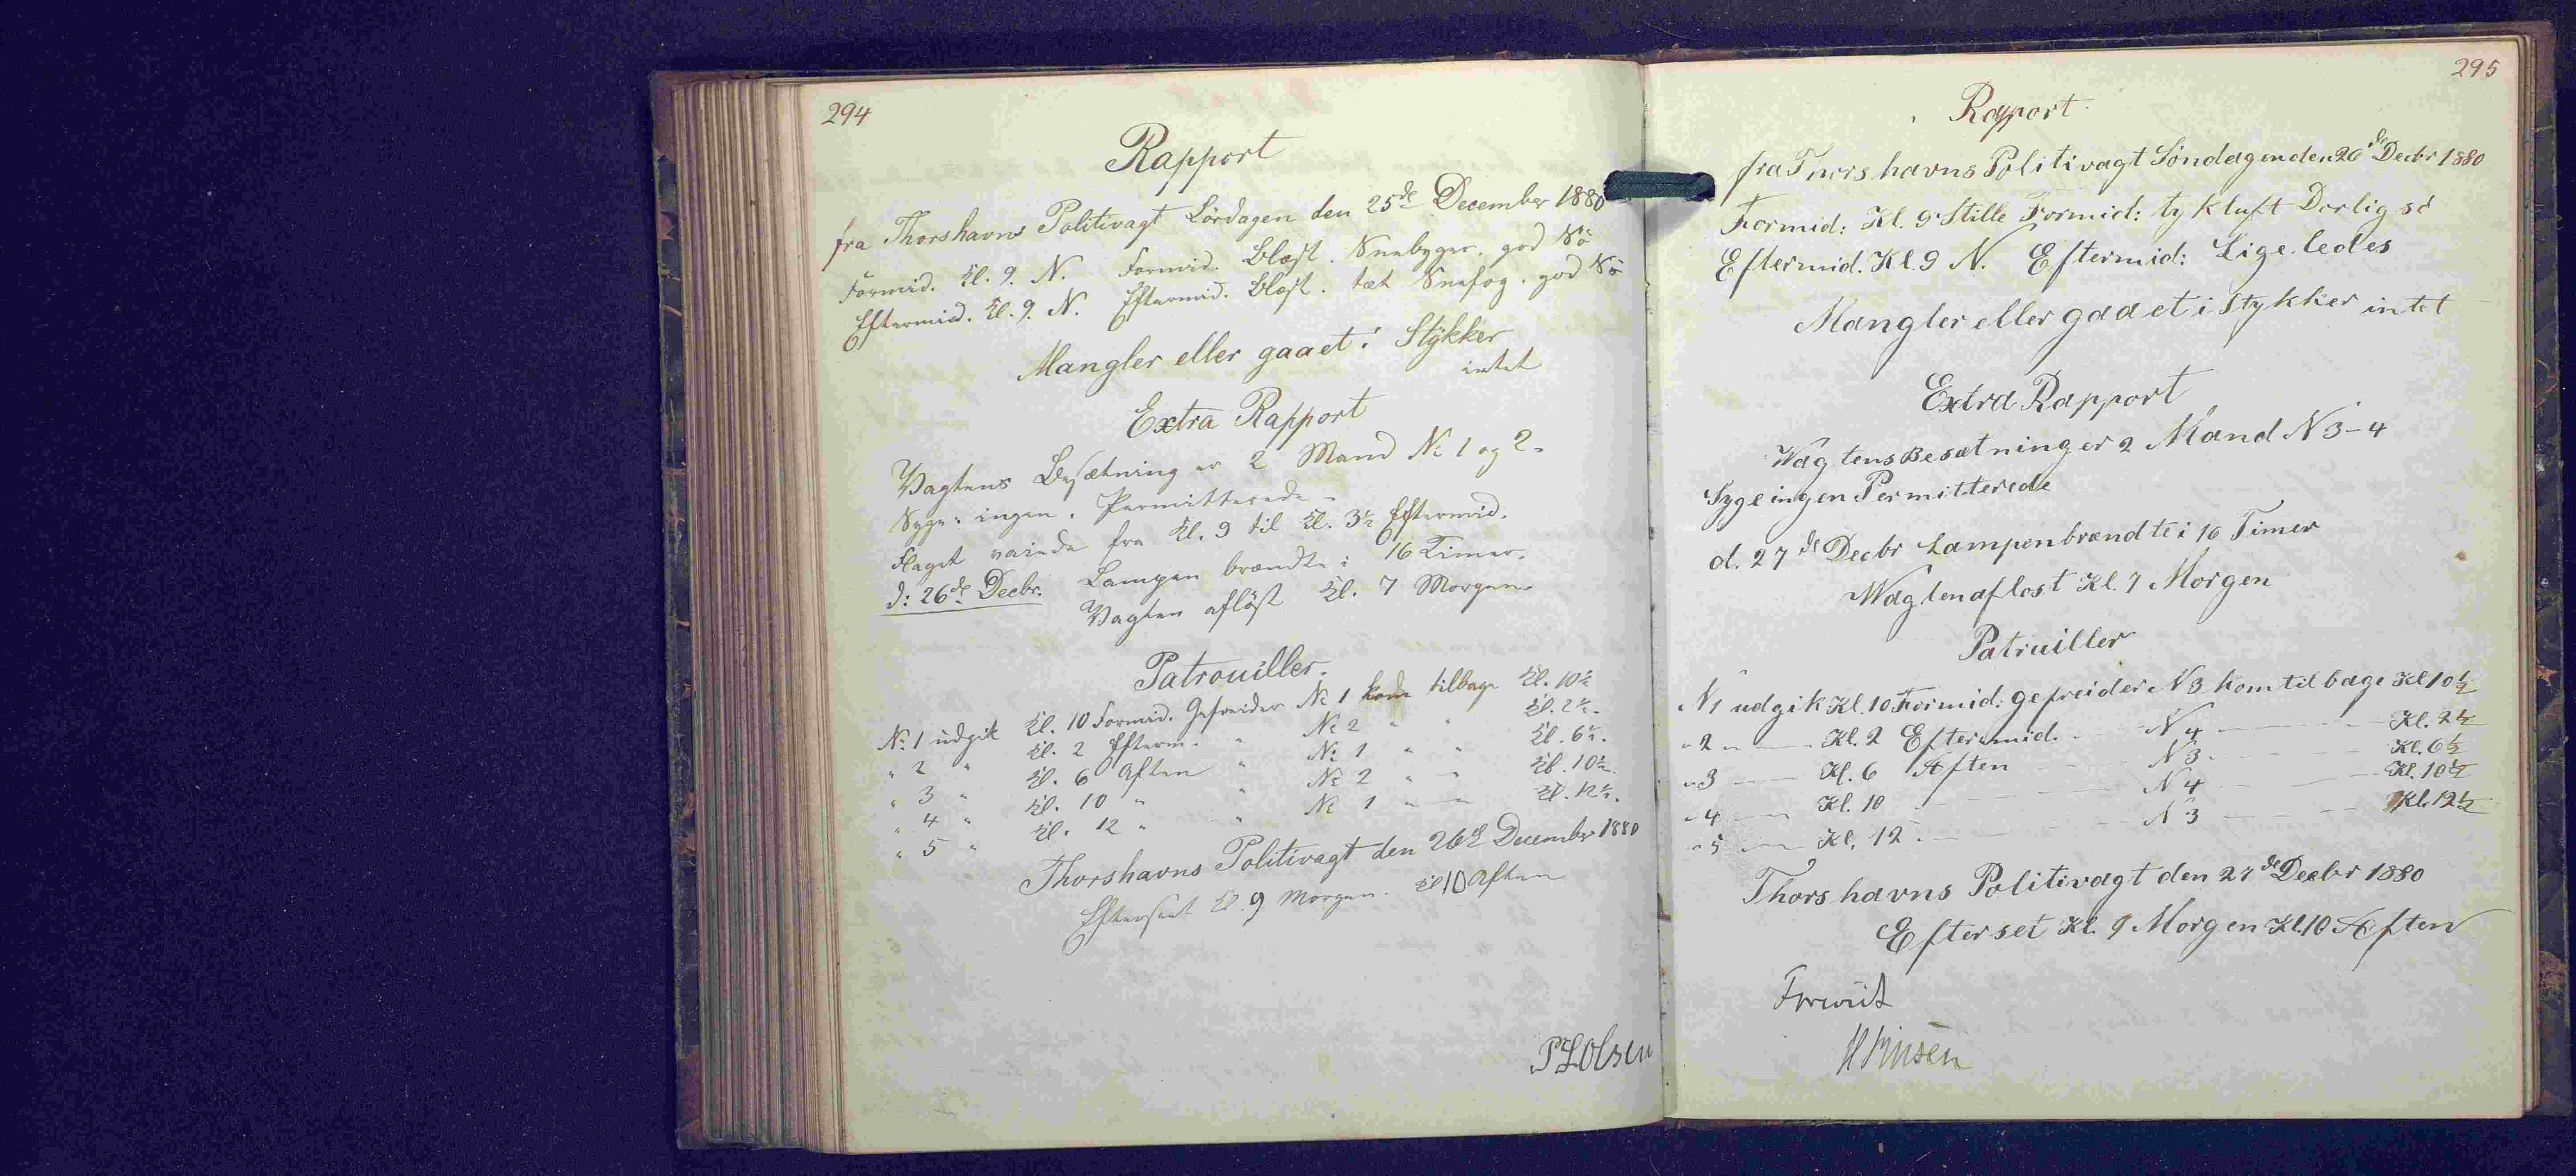 294
Rapport
fra Thorshavns Politivagt Lördagen den 25de December 1880
Formid. Kl. 9. N. Formid. Blæst. Snebyger. god Sö
Eftermid. Kl. 9. N. Eftermid. Blæst. tæt Snefog. god Sö
Mangler eller gaaet i Stykker
intet
Extra Rapport
Vagtens Besætning er 2 Mand No 1 og 2.
Syge: ingen. Permitterede -
Flaget vaiede fra Kl. 9 til Kl. 3½ Eftermid.
d: 26de Decbr. Lampen brændte i 16 Timer.
Vagten aflöst Kl. 7 Morgen
Patrouiller.
No 1 udgik Kl. 10 Formid. Gefreider No 1 kom tilbage Kl. 10½
" 2 " Kl. 2 Efterm. " No 2 " " Kl. 2½.
" 3 " Kl. 6 Aften " No 1 " " Kl. 6½.
" 4 " Kl. 10 " " No 2 " " Kl. 10½.
" 5 " Kl. 12 " " No 1 " " Kl. 12½.
Thorshavns Politivagt den 26de December 1880
Efterseet Kl. 9 Morgen. Kl 10 Aften
P L Olsen
295
Rapport
fra Thorshavns Politivagt Söndagen den 26de Decbr 1880
Formid: Kl. 9 Stille Formid: tyk luft Dorlig sö
Eftermid. Kl. 9 N. Eftermid: Lige ledes
Mangler eller gaaet i Stykker intet
Extra Rapport
Vagtens Besætning er 2 Mand N 3-4
Syge ingen Permitterede
d. 27de Decbr Lampen brændte i 16 Timer
Vagten aflost Kl. 7 Morgen
Patruiller
N 1 udgik Kl. 10 Formid: gefreider N 3 kom til bage Kl 10½
" 2 " — Kl. 2 Eftermid. — N 4 — Kl. 2½
" 3 — Kl. 6 Aften — N 3 — Kl. 6½
" 4 — Kl. 10 — N 4 — Kl. 10½
" 5 — Kl. 12 — N 3 — Kl. 12½
Thorshavns Politivagt den 27de Decbr 1880
Efterset Kl. 9 Morgen Kl. 10 Aften